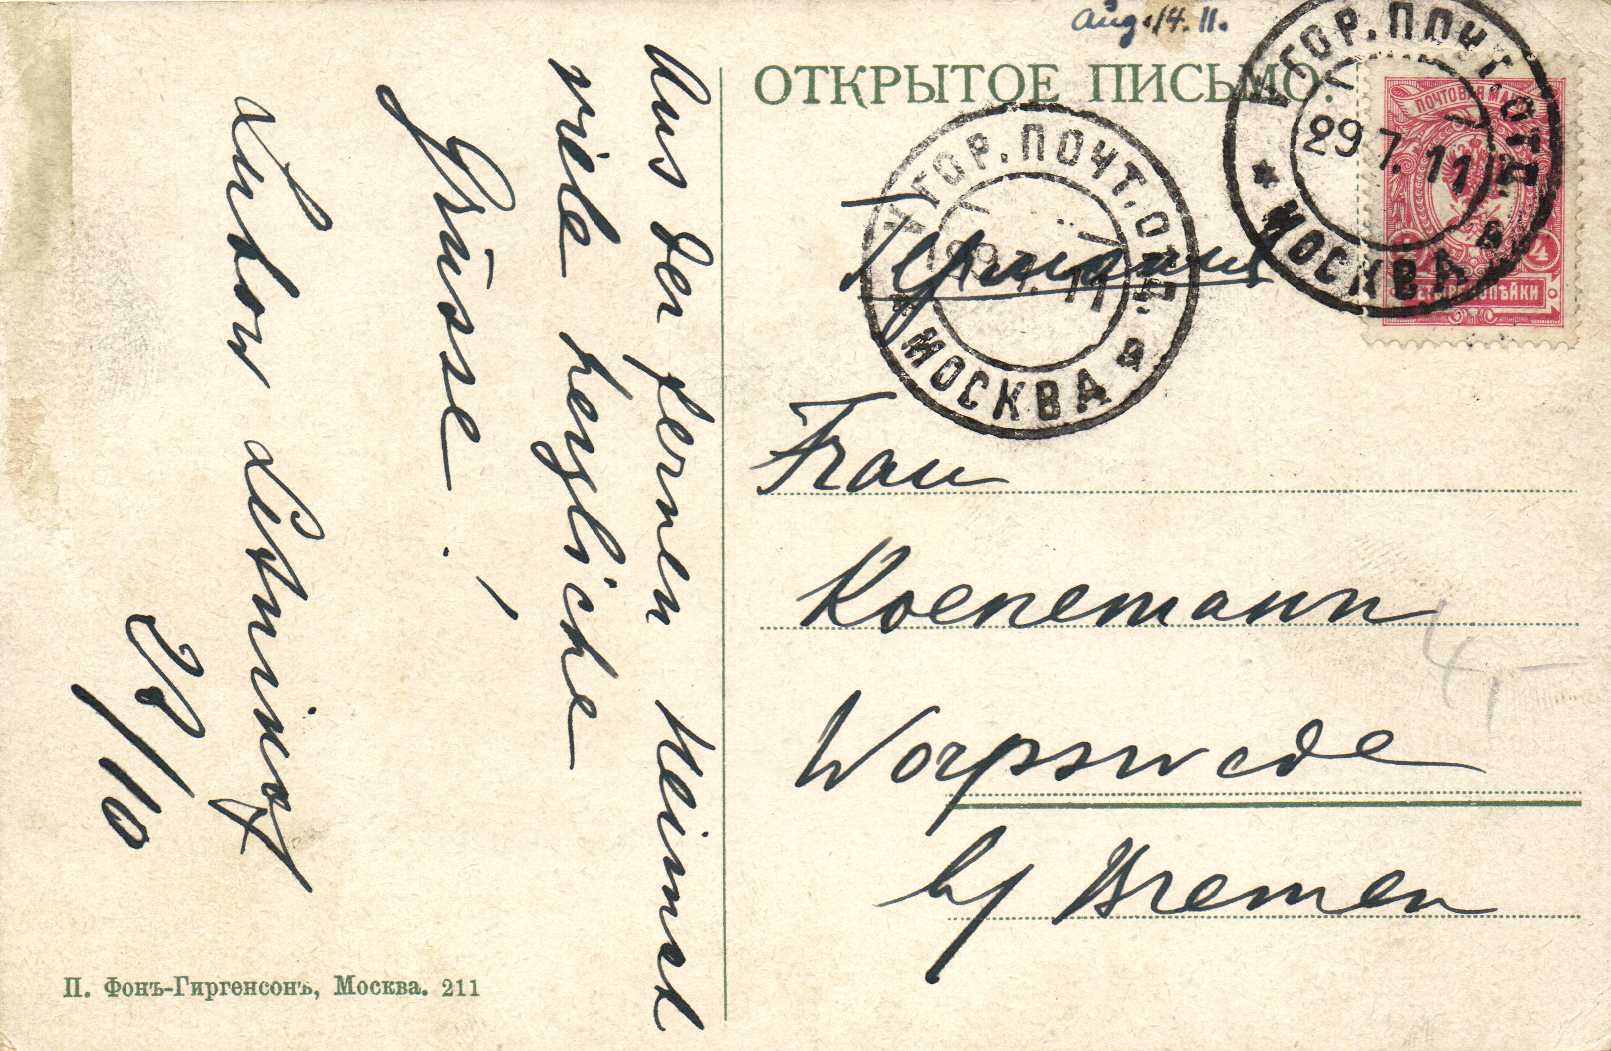 Aug. 14. 11.
ОТКРЫТОЕ ПИСЬМО.
ГОР. ПОЧТ. ОТД.
29 7. 11
МОСКВА
ГОР. ПОЧТ. ОТД.
29 7. 11
МОСКВА
ПОЧТОВАЯ МАРКА
4
КОПѢЙКИ
Aus der fernen Heimat
viele herzliche
Grüsse!
28/10
Frau
Koenemann
Worpswede
by Bremen
4,-
П. Фонъ-Гиргенсонъ, Москва. 211